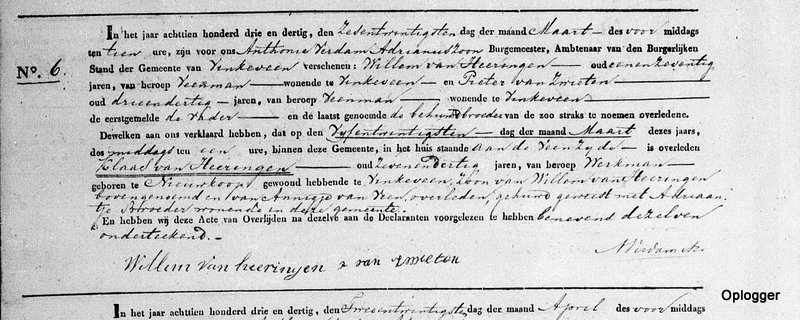 In het jaar achttien honderd drie en dertig, den Zesentwintigsten dag der maand Maart des voor middags
ten tien ure, zijn voor ons Anthonie Verdam Adrianuszoon Burgemeester, Ambtenaar van den Burgerlijken
Stand der Gemeente van Vinkeveen verschenen: Willem van Heeringen oud eenenzeventig
No. 6.
jaren, van beroep Veenman wonende te Vinkeveen en Pieter van Zwieten
oud drieendertig jaren, van beroep Veenman wonende te Vinkeveen
de eerstgemelde de Vader en de laatst genoemde de behuwdbroeder van de zoo straks te noemen overledene.
Dewelken aan ons verklaard hebben, dat op den Vyfentwintigsten dag der maand Maart dezes jaars,
des middags ten een ure, binnen deze Gemeente, in het huis staande aan de Veenzyde is overleden
Klaas van Heeringen oud Zevenendertig jaren, van beroep Werkman
geboren te Nieuwkoop, gewoond hebbende te Vinkeveen, Zoon van Willem van Heeringen
bovengenoemd en van Annigje van Veen, overleden, gehuwd geweest met Adriaan
tje Broeder wonende in deze gemeente.
En hebben wij deze Acte van Overlijden na dezelve aan de Declaranten voorgelezen te hebben benevend dezelven
onderteekend.
Willem van heeringen P van zwieten
A Verdam
In het jaar achttien honderd drie en dertig, den Tweeentwintigsten dag der maand April des voor middags
Oplogger